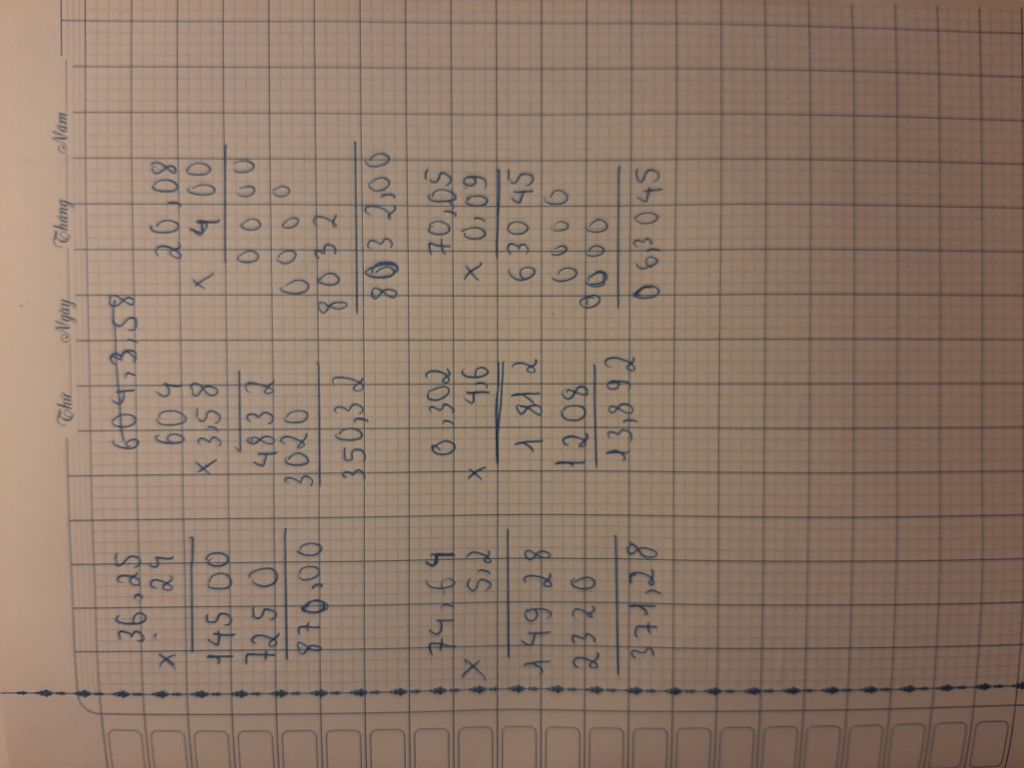 Thứ Ngày Tháng Năm
36,25
x 24
145 00
725 0
870,00
604,3,58
604
x 3,58
4832
3020
350,32
20,08
x 400
0000
0000
8032
8032,00
74,64
x 5,2
149 28
2320
371,28
0,302
x 4,6
1 812
1208
13,892
70,05
x 0,09
63045
0000
0000
06,3045